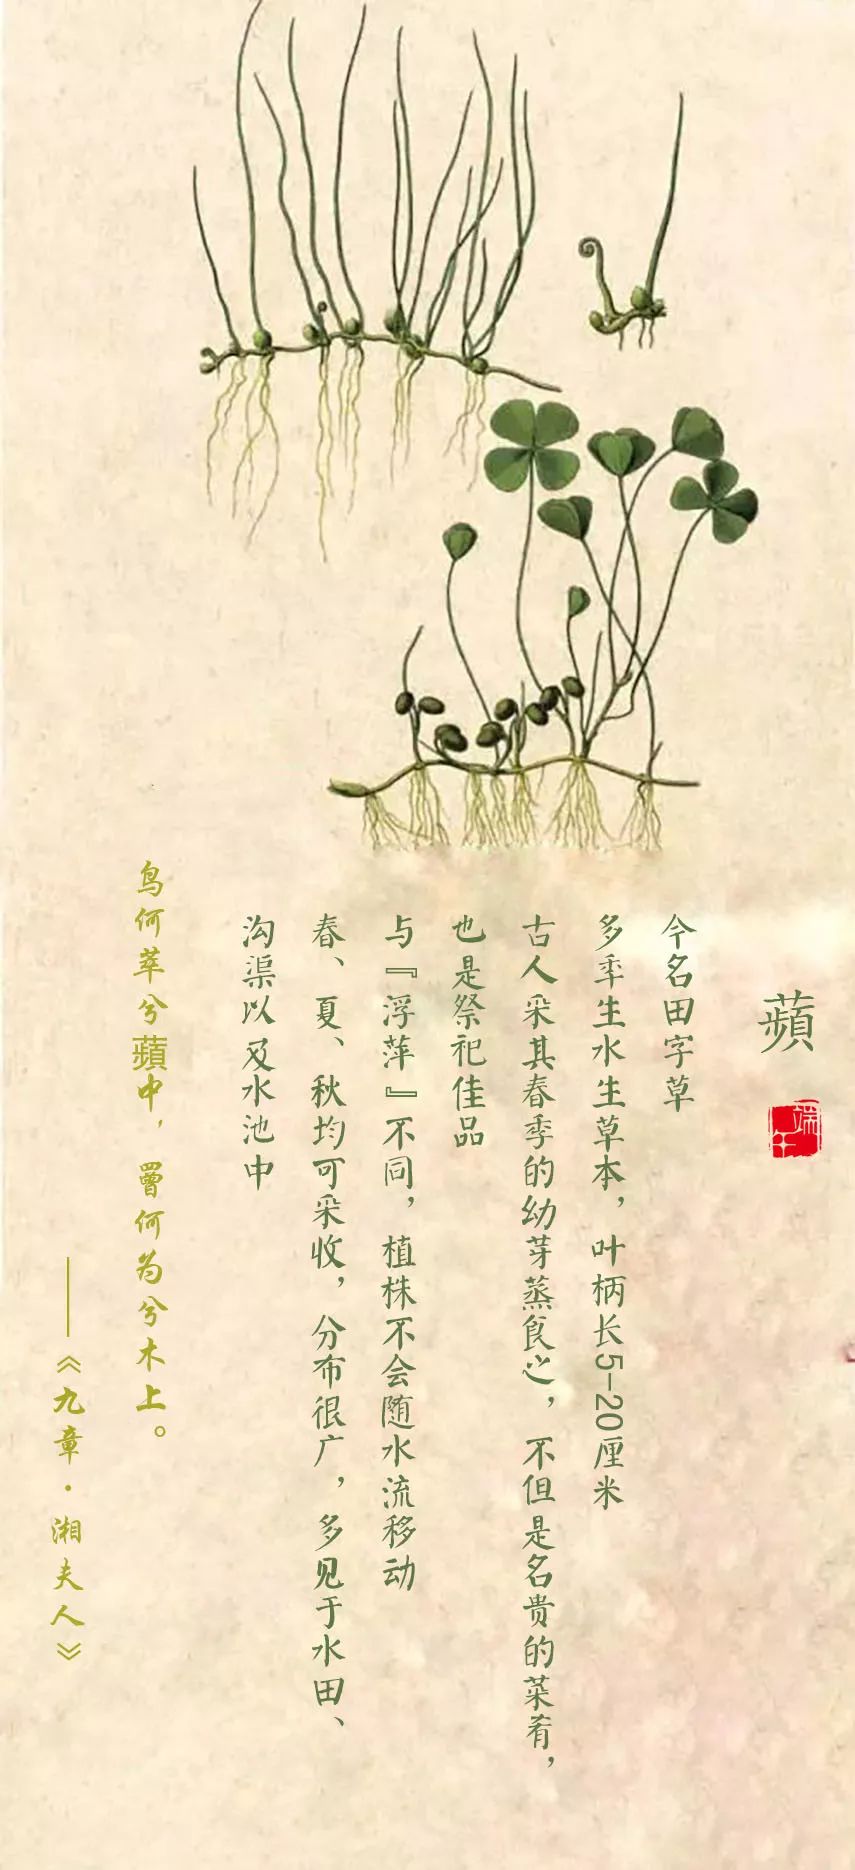 蘋
端午
今名田字草
多年生水生草本，叶柄长5-20厘米
古人采其春季的幼芽蒸食之，不但是名贵的菜肴，
也是祭祀佳品
与『浮萍』不同，植株不会随水流移动
春、夏、秋均可采收，分布很广，多见于水田、
沟渠以及水池中
鸟何萃兮蘋中，罾何为兮木上。
——《九章·湘夫人》